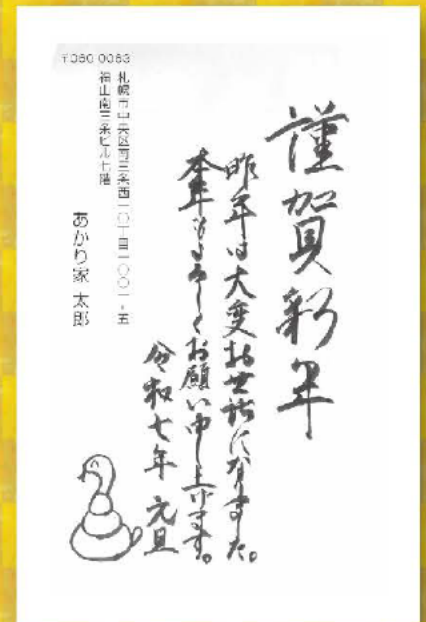 謹賀新年
昨年は大変お世話になりました。
本年もよろしくお願い申し上げます。
令和七年 元旦
〒060-0063
札幌市中央区南三条西一〇丁目一〇〇一-五
福山南三条ビル七階
あかり家 太郎